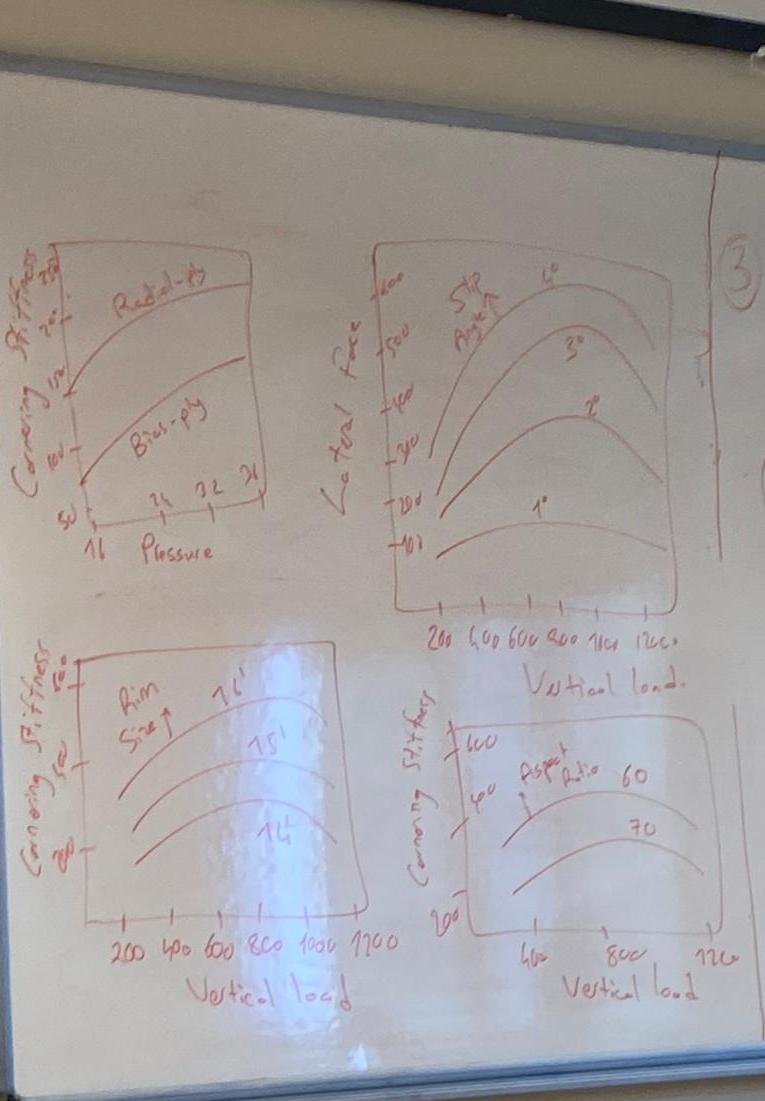 Cornering Stiffness
250
200
150
100
50
Radial-ply
Bias-ply
16 24 32
Pressure
Lateral Force
600
500
400
300
200
100
Slip
Angle
4°
3°
2°
1°
200 400 600 800 1000 1200
Vertical load.
3
Cornering Stiffness
Rim
Size
16'
15'
14'
200 400 600 800 1000 1200
Vertical load
Cornering Stiffness
600
400
200
Aspect
Ratio
60
70
400 800 1200
Vertical load